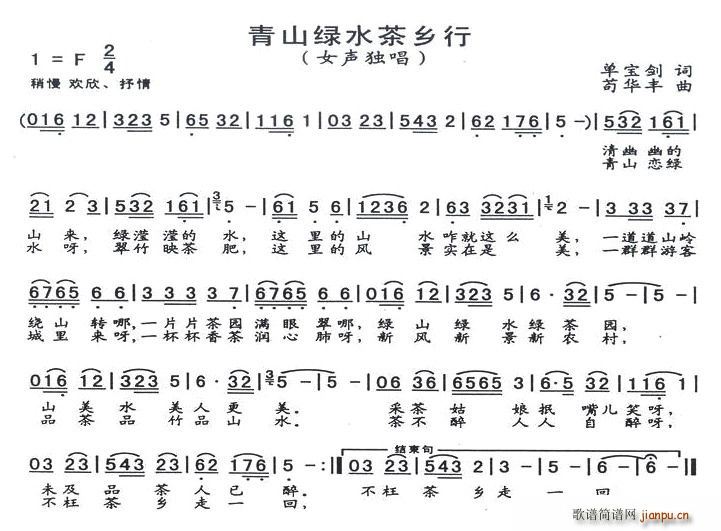 青山绿水茶乡行
（女声独唱）
1 = F 2/4
稍慢 欢欣、抒情
单宝剑 词
苟华丰 曲
(016 12 | 323 5 | 65 32 | 116 1 | 03 23 | 543 2 | 62 176 | 5 - ) | 532 161 |
清幽幽的
青山恋绿
21 2 | 532 161 | 5 - | 61 5 6 | 1236 2 | 63 3231 | 2 - | 3 33 37 |
山来，绿滢滢的水，这里的山 水咋就这么 美，一道道山岭
水呀，翠竹映茶肥，这里的风 景实在是 美，一群群游客
6765 6 6 | 3 33 37 | 6765 6 6 | 016 12 | 323 5 | 6·32 | 5 - | 5 - |
绕山 转哪，一片片茶园满眼 翠哪，绿山 绿 水绿茶园，
城里 来呀，一杯杯香茶润心 肺呀，新风 新 景新农村，
016 12 | 323 5 | 6· 32 | 5 - | 5 - | 036 | 6565 | 3·532 | 116 1 |
山美水 美人更美。 采茶姑 娘抿 嘴儿笑呀，
品茶品 竹品山水。 茶不醉 人人 自醉呀，
结束句
03 23 | 543 23 | 62 176 | 5 - :‖ 03 23 | 543 2 | 62 56 | 6 - | 6 - ‖
未及 品 茶人已 醉。 不枉 茶 乡走 一 回
不枉 茶 乡走一 回，
歌谱简谱网
jianpu.cn